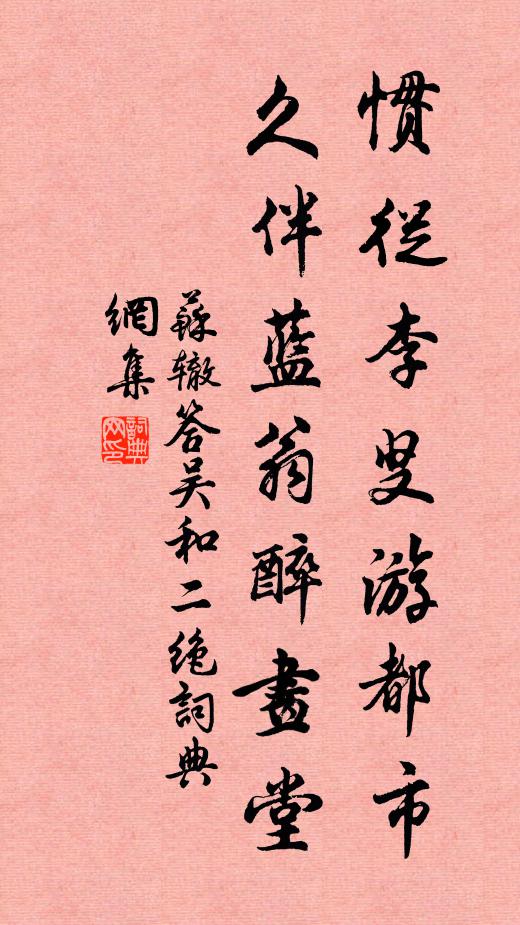 慣從李叟游都市
久伴藍翁醉畫堂
蘇辙答吴和二绝詞典
網集
詞典网印